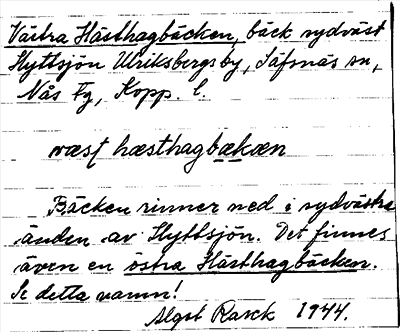 Västra Hästhagbäcken, bäck sydväst
Hyttsjön Ulriksbergs by, Säfsnäs sn,
Nås Fg, Kopp. l.
væst hæsthagbækæn
Bäcken rinner ned i sydvästra
änden av Hyttsjön. Det finnes
även en östra Hästhagbäcken.
Se detta namn!
Algot Rarck 1944.